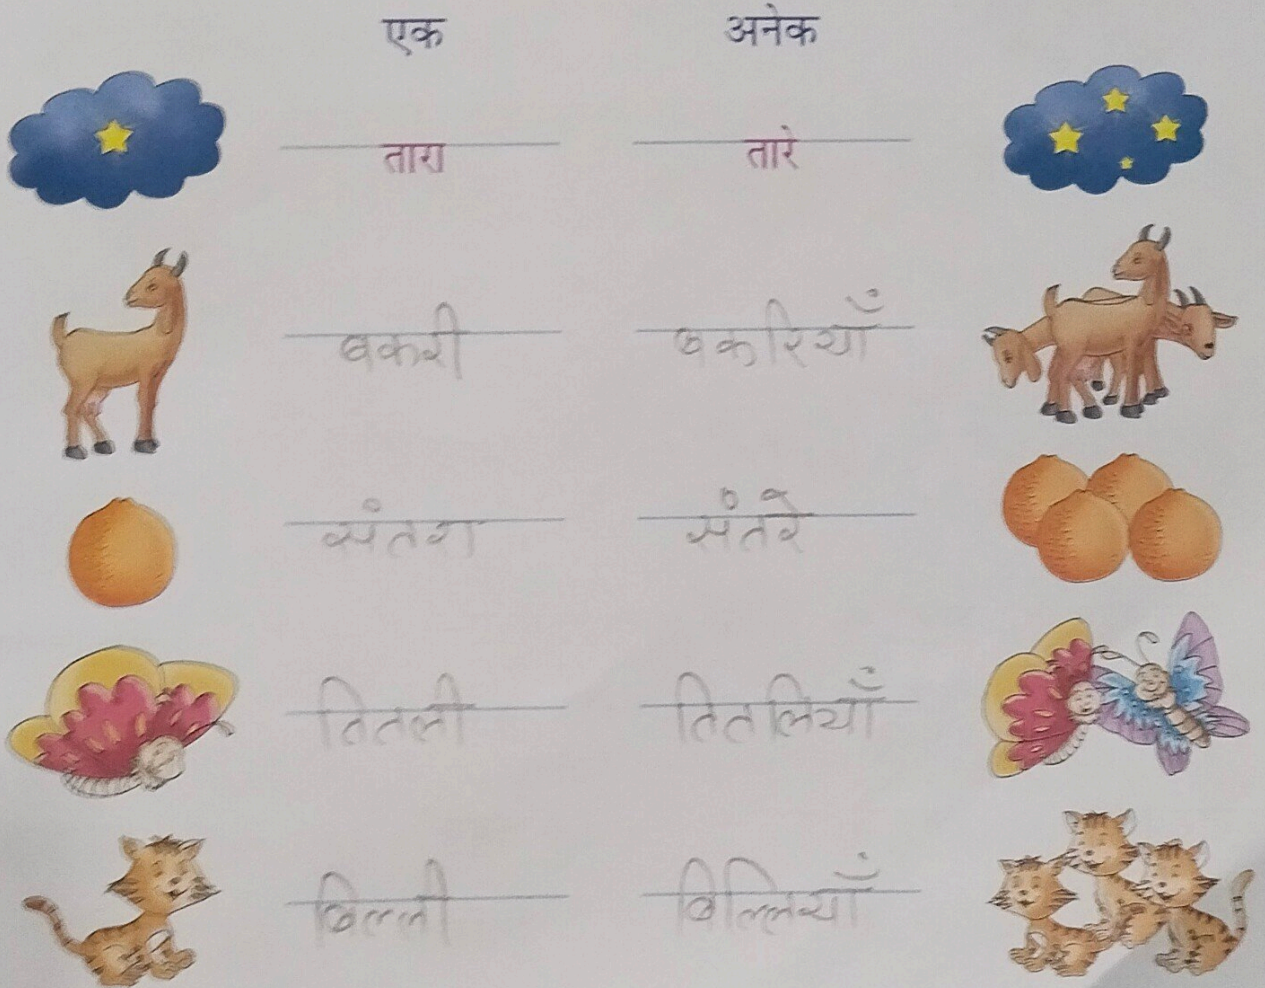 एक अनेक
तारा तारे
बकरी बकरियाँ
संतरा संतरे
तितली तितलियाँ
बिल्ली बिल्लियाँ